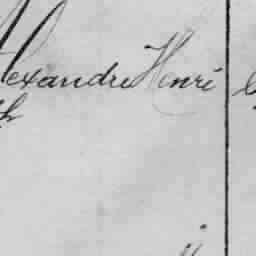 Alexandre Henri